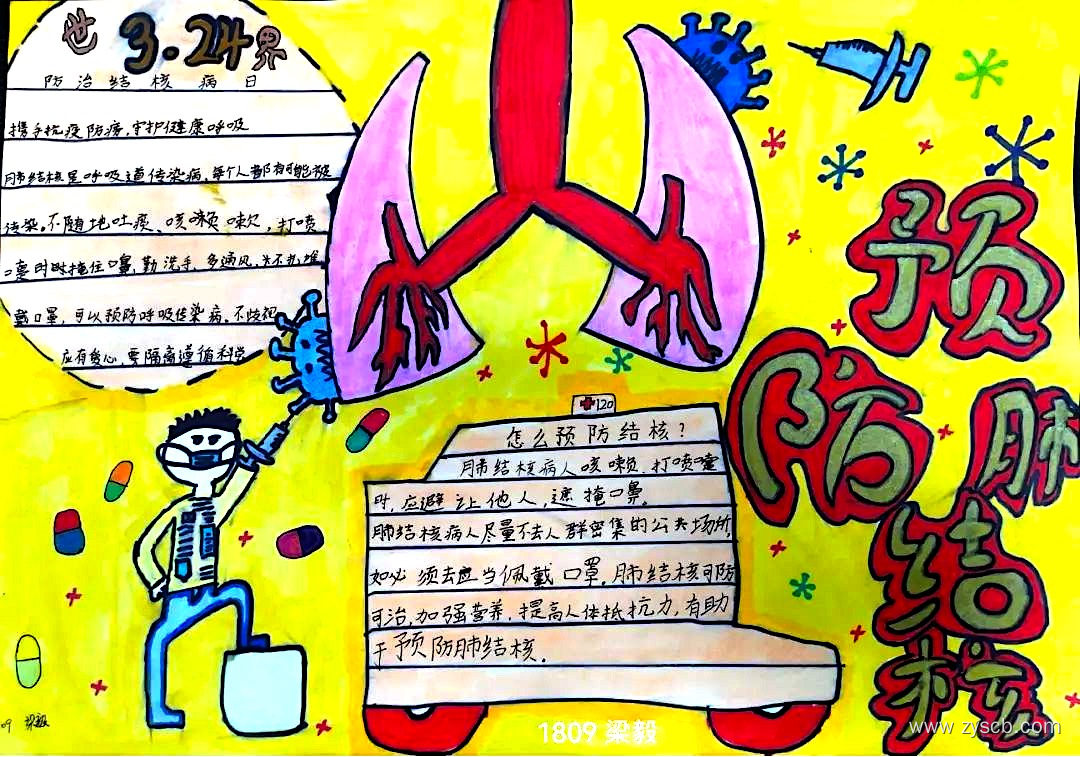 世 3.24 界
防治结核病日
携手抗疫防痨,守护健康呼吸
肺结核是呼吸道传染病,每个人都有可能被
传染。不随地吐痰、咳嗽 嗽,打喷
嚏时时掩住口鼻,勤洗手、多通风,不扎堆
戴口罩,可以预防呼吸传染病,不歧视
应有爱心,要隔离遵循科学
预
防
肺
结
核
120
怎么预防结核?
肺结核病人咳嗽、打喷嚏
时,应避让他人,遮掩口鼻。
肺结核病人尽量不去人群密集的公共场所,
如必须去应当佩戴口罩,肺结核可防
可治,加强营养,提高人体抵抗力,有助
于预防肺结核.
09 梁毅
1809 梁毅
www.zyscb.com